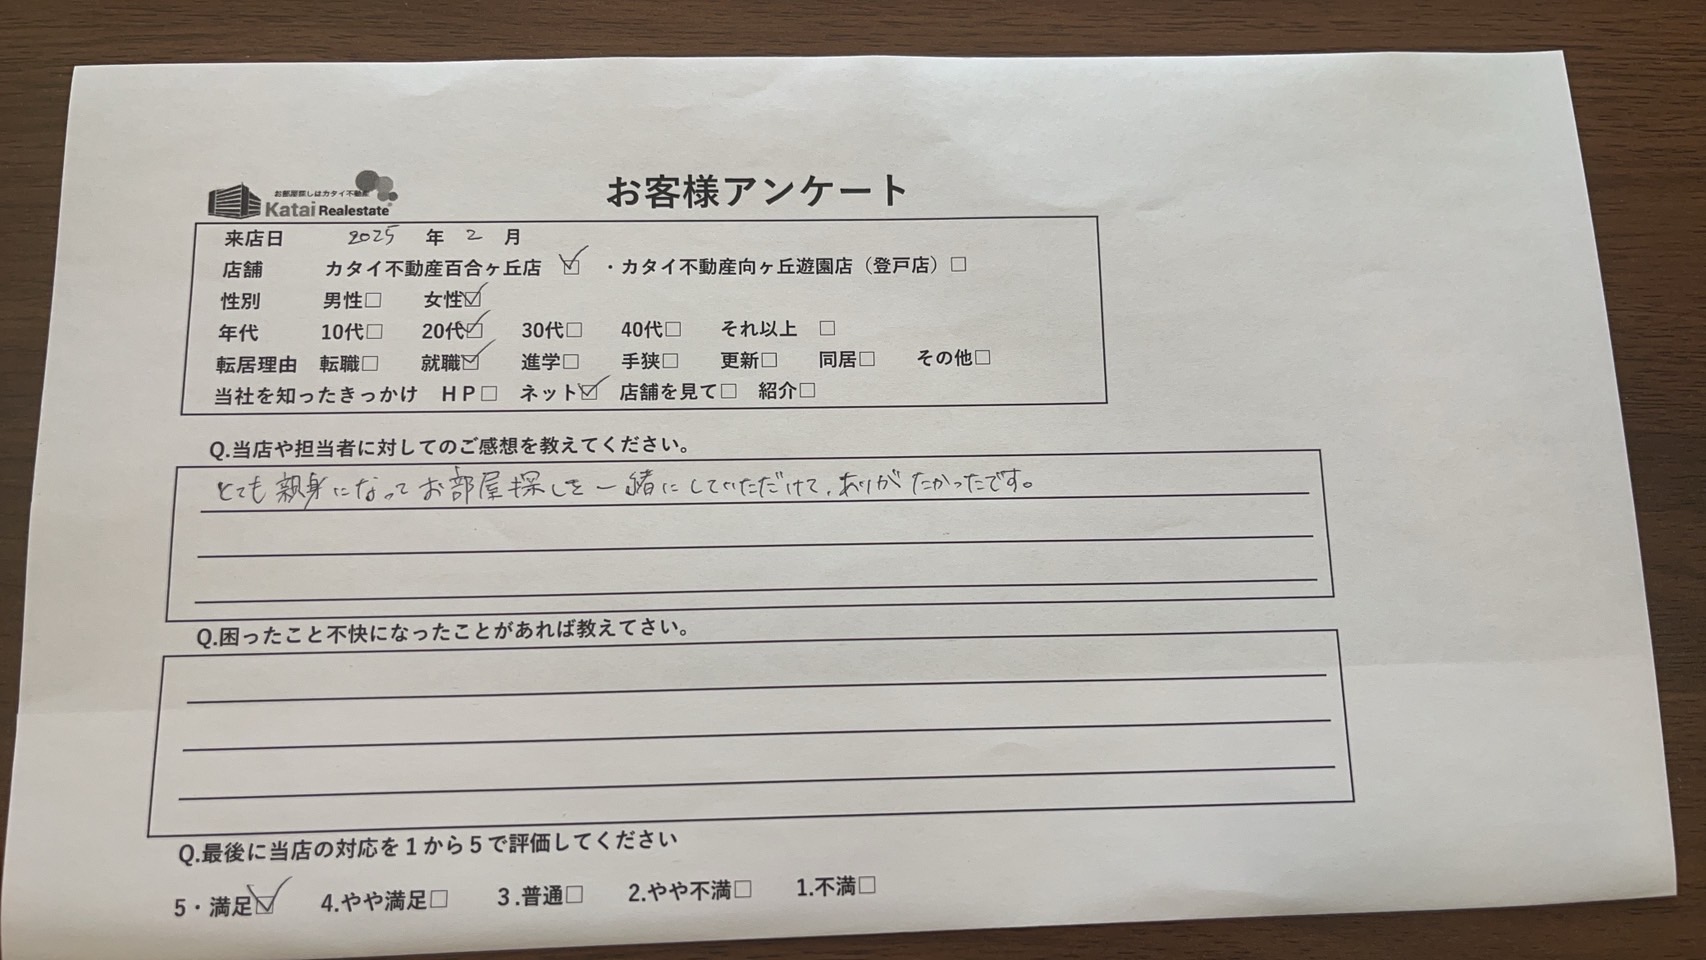 お部屋探しはカタイ不動産
Katai Realestate
お客様アンケート
来店日 2025 年 2 月
店舗 カタイ不動産百合ヶ丘店 ☑ ・カタイ不動産向ヶ丘遊園店（登戸店）□
性別 男性□ 女性☑
年代 10代□ 20代☑ 30代□ 40代□ それ以上 □
転居理由 転職□ 就職☑ 進学□ 手狭□ 更新□ 同居□ その他□
当社を知ったきっかけ ＨＰ□ ネット☑ 店舗を見て□ 紹介□
Q.当店や担当者に対してのご感想を教えてください。
とても親身になってお部屋探しを一緒にしていただけて、ありがたかったです。
Q.困ったこと不快になったことがあれば教えてさい。
Q.最後に当店の対応を１から５で評価してください
5・満足☑ 4.やや満足□ 3.普通□ 2.やや不満□ 1.不満□